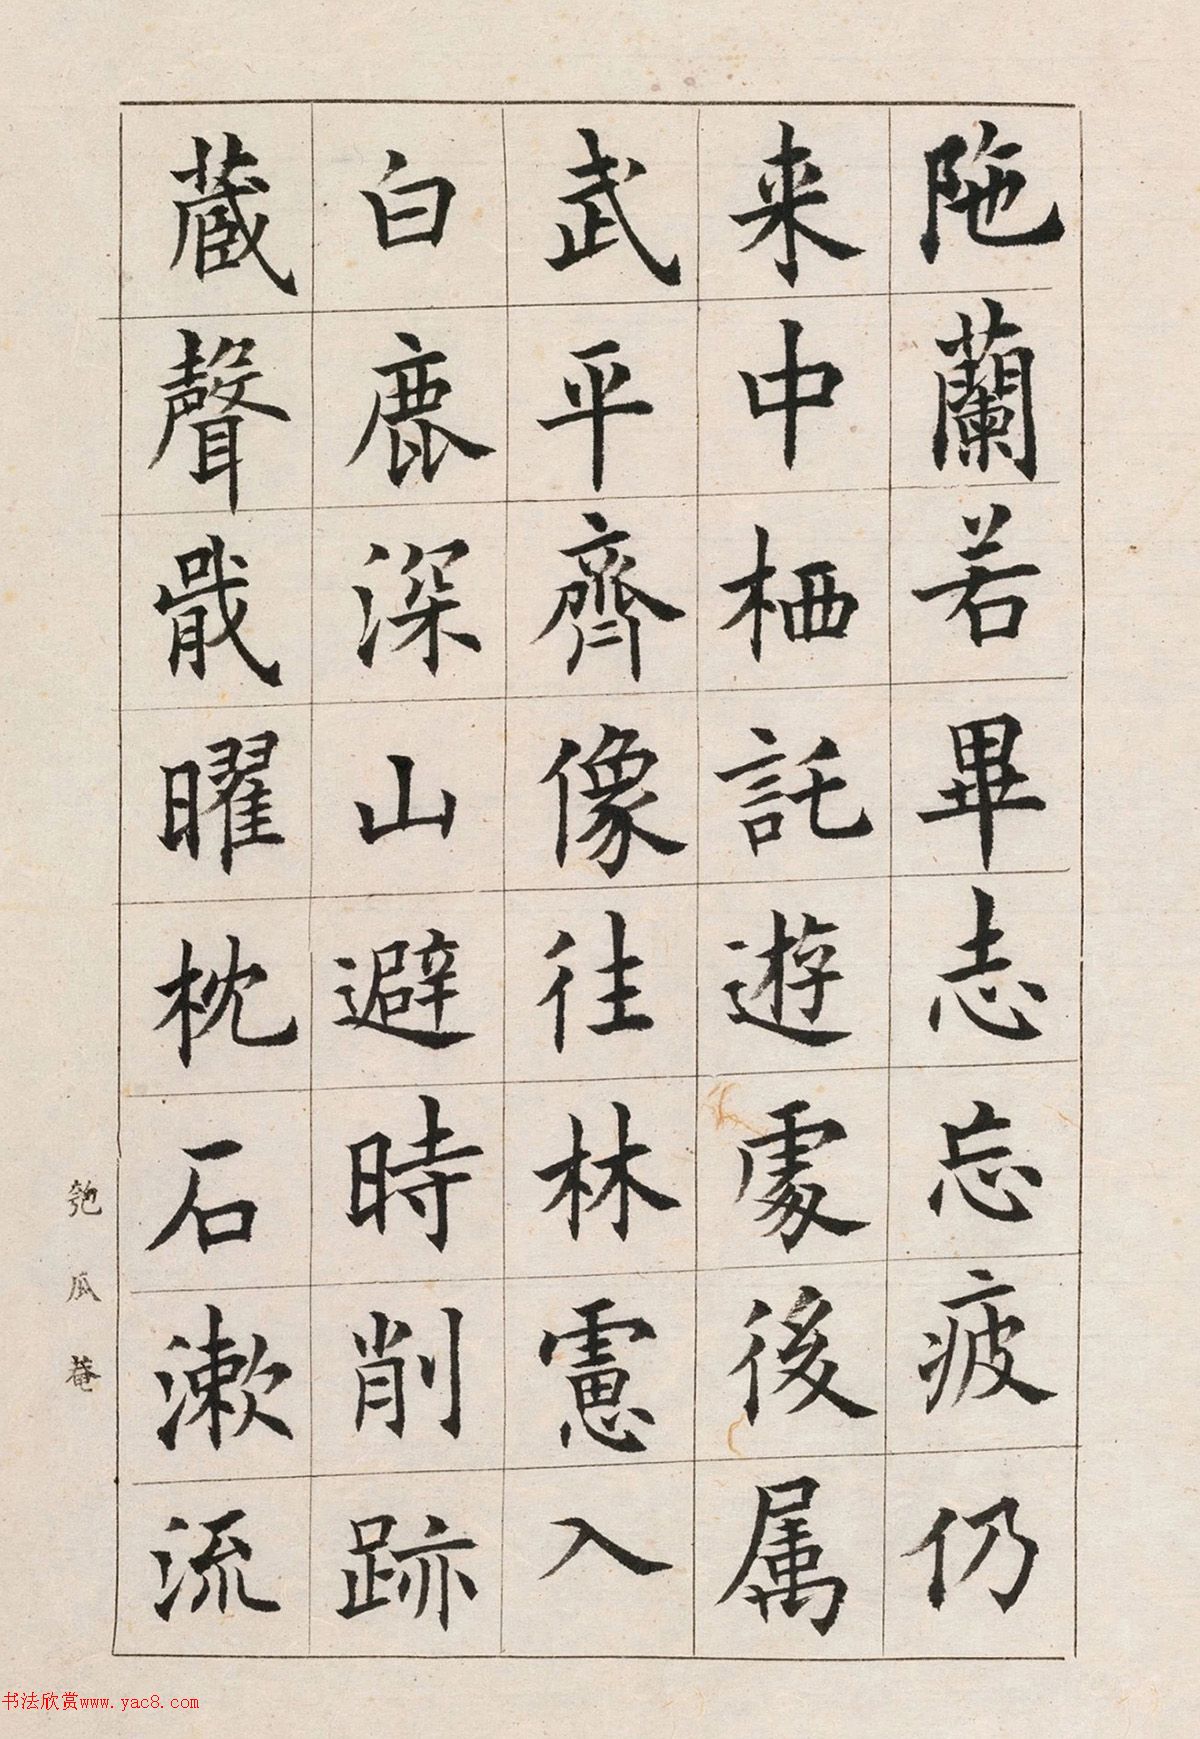 陁蘭若畢志忘疲仍
来中栖託遊處後属
武平齊像往林慮入
白鹿深山避時削跡
蔵聲戢曜枕石漱流
匏瓜菴
书法欣赏www.yac8.com